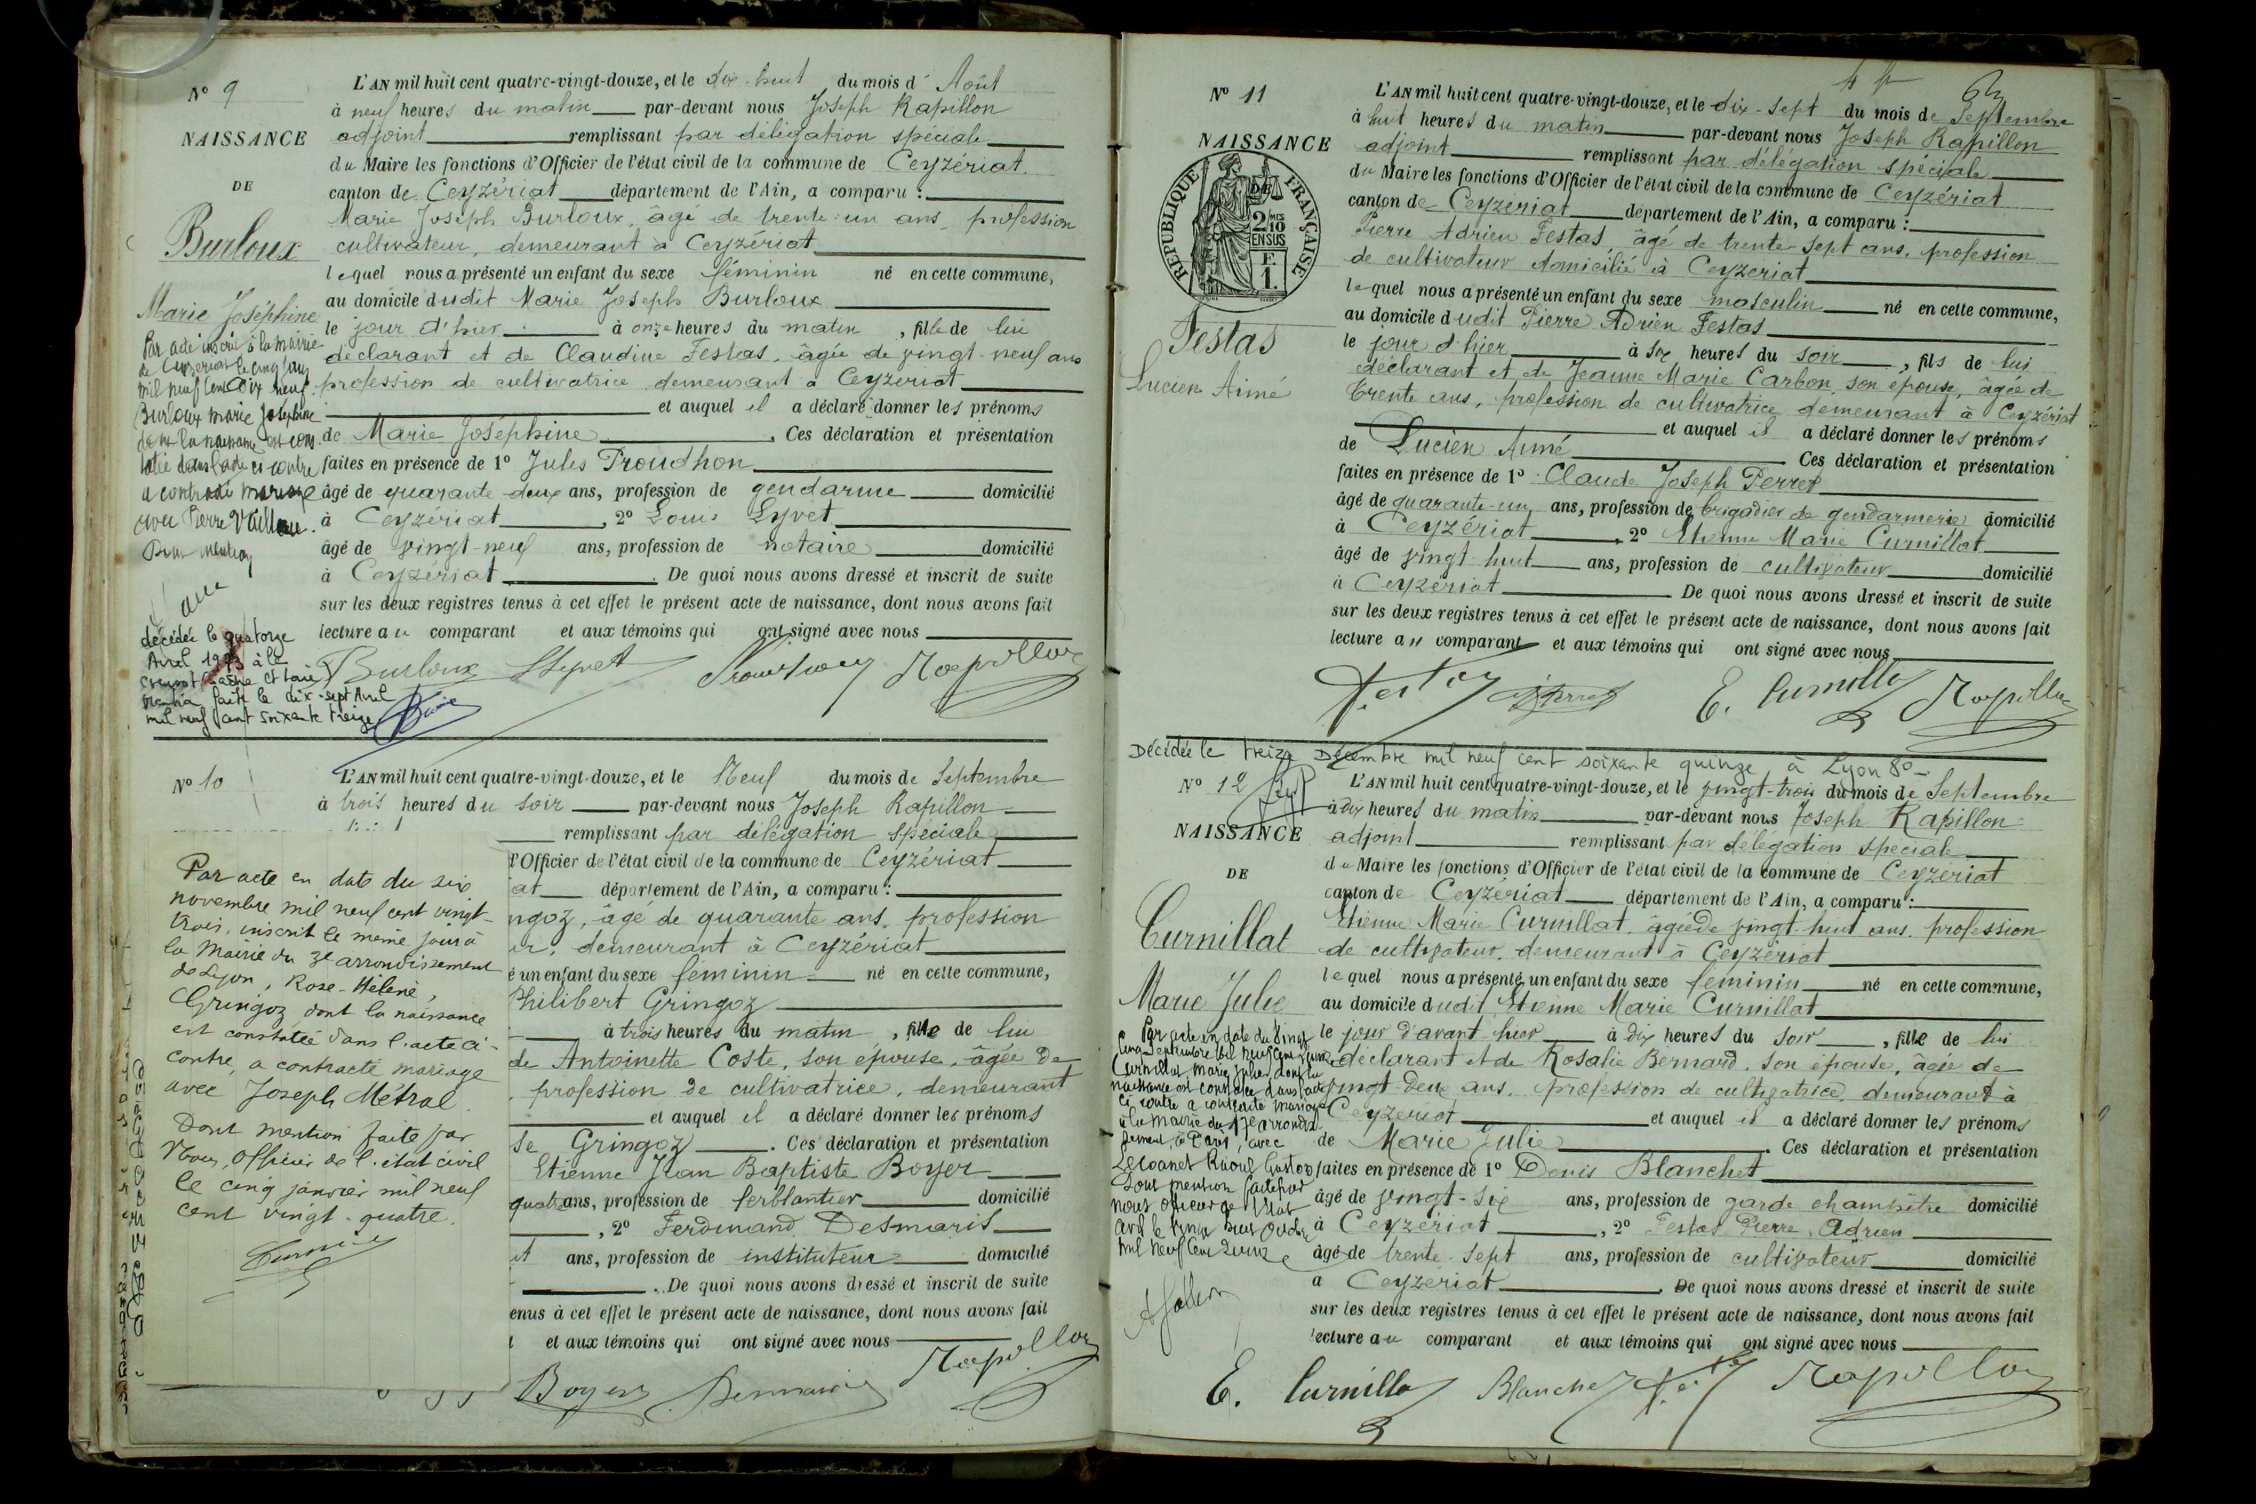 N° 9
NAISSANCE
DE
Burloux
Marie Joséphine
L'AN mil huit cent quatre-vingt-douze, et le dix-huit du mois d' Août
à neuf heures du matin par-devant nous Joseph Rapillon
adjoint remplissant par délégation spéciale
du Maire les fonctions d'Officier de l'état civil de la commune de Ceyzériat
canton de Ceyzériat département de l'Ain, a comparu :
Marie Joseph Burloux, âgé de trente-un ans, profession
cultivateur, demeurant à Ceyzériat
lequel nous a présenté un enfant du sexe féminin né en cette commune,
au domicile dudit Marie Joseph Burloux
le jour d'hier à onze heures du matin, fille de lui
déclarant et de Claudine Festas, âgée de vingt-neuf ans
profession de cultivatrice demeurant à Ceyzériat
et auquel il a déclaré donner les prénoms
de Marie Joséphine. Ces déclaration et présentation
faites en présence de 1° Jules Proudhon
âgé de quarante deux ans, profession de gendarme domicilié
à Ceyzériat, 2° Louis Lyvet
âgé de vingt-neuf ans, profession de notaire domicilié
à Ceyzériat. De quoi nous avons dressé et inscrit de suite
sur les deux registres tenus à cet effet le présent acte de naissance, dont nous avons fait
lecture au comparant et aux témoins qui ont signé avec nous
Par acte inscrit à la mairie
de Ceyzériat le cinq
mil neuf cent dix neuf
Burloux Marie Joséphine
dont la naissance est cons-
tatée dans l'acte ci contre
a contracté mariage
avec Pierre
Dont mention
décédée le quatorze
Avril 1973 à
Creusot Saône et Loire
Mention faite le dix-sept Avril
mil neuf cent soixante treize
Burloux Lyvet Proudhon Rapillon
N° 10
L'AN mil huit cent quatre-vingt-douze, et le Neuf du mois de Septembre
à trois heures du soir par-devant nous Joseph Rapillon
remplissant par délégation spéciale
l'Officier de l'état civil de la commune de Ceyzériat
iat département de l'Ain, a comparu :
ngoz, âgé de quarante ans, profession
ur, demeurant à Ceyzériat
é un enfant du sexe féminin né en cette commune,
Philibert Gringoz
à trois heures du matin, fille de lui
de Antoinette Coste, son épouse, âgée de
profession de cultivatrice, demeurant
et auquel il a déclaré donner les prénoms
se Gringoz. Ces déclaration et présentation
Etienne Jean Baptiste Boyer
quatre ans, profession de ferblantier domicilié
, 2° Ferdinand Desmaris
ans, profession de instituteur domicilié
. De quoi nous avons dressé et inscrit de suite
enus à cet effet le présent acte de naissance, dont nous avons fait
et aux témoins qui ont signé avec nous
Par acte en date du six
novembre mil neuf cent vingt-
trois, inscrit le même jour à
la Mairie du 3e arrondissement
de Lyon, Rose-Hélène,
Gringoz dont la naissance
est constatée dans l'acte ci-
contre, a contracté mariage
avec Joseph Métral.
Dont mention faite par
Nous, officier de l'état civil
le cinq janvier mil neuf
cent vingt-quatre.
Boyer Desmaris Rapillon
N° 11
NAISSANCE
DE
RÉPUBLIQUE FRANÇAISE
2/10 EN SUS
F. 1.
Festas
Lucien Aimé
L'AN mil huit cent quatre-vingt-douze, et le dix-sept du mois de Septembre
à huit heures du matin par-devant nous Joseph Rapillon
adjoint remplissant par délégation spéciale
du Maire les fonctions d'Officier de l'état civil de la commune de Ceyzériat
canton de Ceyzériat département de l'Ain, a comparu :
Pierre Adrien Festas, âgé de trente-sept ans, profession
de cultivateur domicilié à Ceyzériat
lequel nous a présenté un enfant du sexe masculin né en cette commune,
au domicile dudit Pierre Adrien Festas
le jour d'hier à six heures du soir, fils de lui
déclarant et de Jeanne Marie Carbon, son épouse, âgée de
trente ans, profession de cultivatrice demeurant à Ceyzériat
et auquel il a déclaré donner les prénoms
de Lucien Aimé Ces déclaration et présentation
faites en présence de 1° Claude Joseph Perret
âgé de quarante-un ans, profession de brigadier de gendarmerie domicilié
à Ceyzériat, 2° Etienne Marie Curnillat
âgé de vingt huit ans, profession de cultivateur domicilié
à Ceyzériat De quoi nous avons dressé et inscrit de suite
sur les deux registres tenus à cet effet le présent acte de naissance, dont nous avons fait
lecture au comparant et aux témoins qui ont signé avec nous
Festas Perret E. Curnillat Rapillon
Décédée le treize Décembre mil neuf cent soixante quinze à Lyon 8e
N° 12
NAISSANCE
DE
Curnillat
Marie Julie
L'AN mil huit cent quatre-vingt-douze, et le vingt-trois du mois de Septembre
à dix heures du matin par-devant nous Joseph Rapillon
adjoint remplissant par délégation spéciale
du Maire les fonctions d'Officier de l'état civil de la commune de Ceyzériat
canton de Ceyzériat département de l'Ain, a comparu :
Etienne Marie Curnillat, âgé de vingt-huit ans, profession
de cultivateur, demeurant à Ceyzériat
lequel nous a présenté un enfant du sexe féminin né en cette commune,
au domicile dudit Etienne Marie Curnillat
le jour d'avant hier à dix heures du soir, fille de lui
déclarant et de Rosalie Bernard, son épouse, âgée de
vingt-deux ans, profession de cultivatrice, demeurant à
Ceyzériat et auquel il a déclaré donner les prénoms
de Marie Julie. Ces déclaration et présentation
faites en présence de 1° Denis Blanchet
âgé de vingt-six ans, profession de garde champêtre domicilié
à Ceyzériat, 2° Festas Pierre Adrien
âgé de trente-sept ans, profession de cultivateur domicilié
à Ceyzériat. De quoi nous avons dressé et inscrit de suite
sur les deux registres tenus à cet effet le présent acte de naissance, dont nous avons fait
lecture au comparant et aux témoins qui ont signé avec nous
Par acte en date du vingt
cinq septembre mil neuf cent quinze
Curnillat, Marie Julie, dont la
naissance est constatée dans l'acte
ci contre a contracté mariage
à la mairie du 17e arrondis-
sement, à Paris, avec
Lecoanet Raoul Gustave
Dont mention faite par
nous officier de l'état
civil le Octobre
mil neuf cent quinze
E. Curnillat Blanchet Festas Rapillon